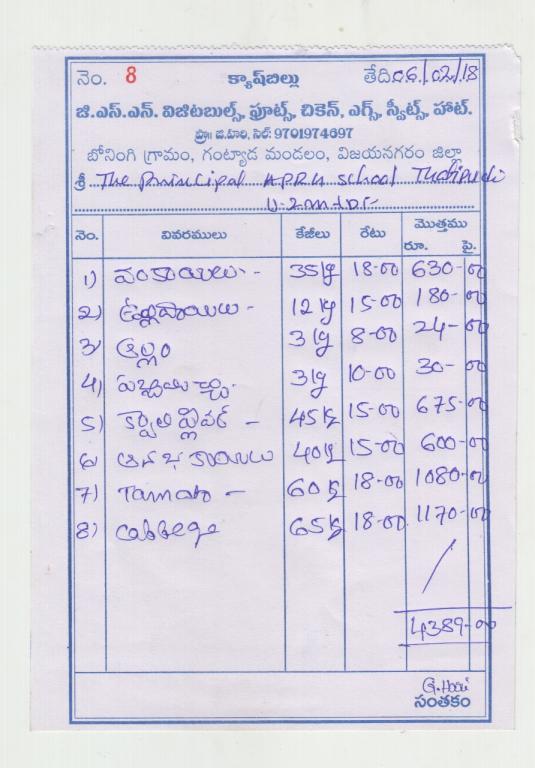 నెం. 8 క్యాష్‌బిల్లు తేది 06/02/18
జి.ఎస్.ఎన్. విజిటబుల్స్, ఫ్రూట్స్, చికెన్, ఎగ్స్, స్వీట్స్, హాట్.
ప్రొ॥ జి.హరి, సెల్: 9701974697
బోనంగి గ్రామం, గంట్యాడ మండలం, విజయనగరం జిల్లా
శ్రీ The Principal A.P.R School
నెం. వివరములు కేజీలు రేటు మొత్తము రూ. పై.
1) వంకాయలు - 35 kg 18-00 630-00
2) ఉల్లిపాయలు - 12 kg 15-00 180-00
3) అల్లం 3 kg 8-00 24-00
4) పచ్చిమిర్చి 3 kg 10-00 30-00
5) క్వాలిఫ్లవర్ - 45 kg 15-00 675-00
6) ఆనపకాయలు 40 kg 15-00 600-00
7) Tamato - 60 kg 18-00 1080-00
8) Cabbege 65 kg 18-00 1170-00
4389-00
G. Hari
సంతకం